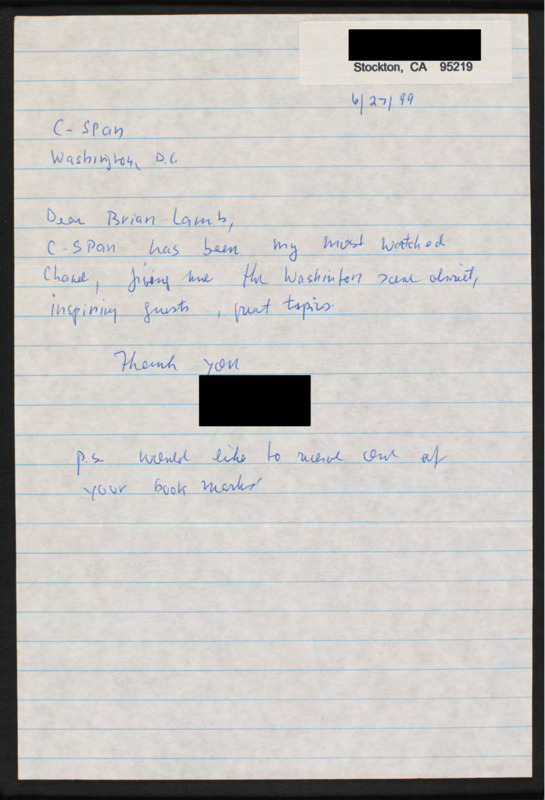 Stockton, CA 95219
6/27/99
C-Span
Washington, D.C
Dear Brian Lamb,
C-SPAN has been my most watched
Chanel, giving me the Washington scene
inspiring guests, great topics.
Thank you
p.s. would like to receive one of
your book marks